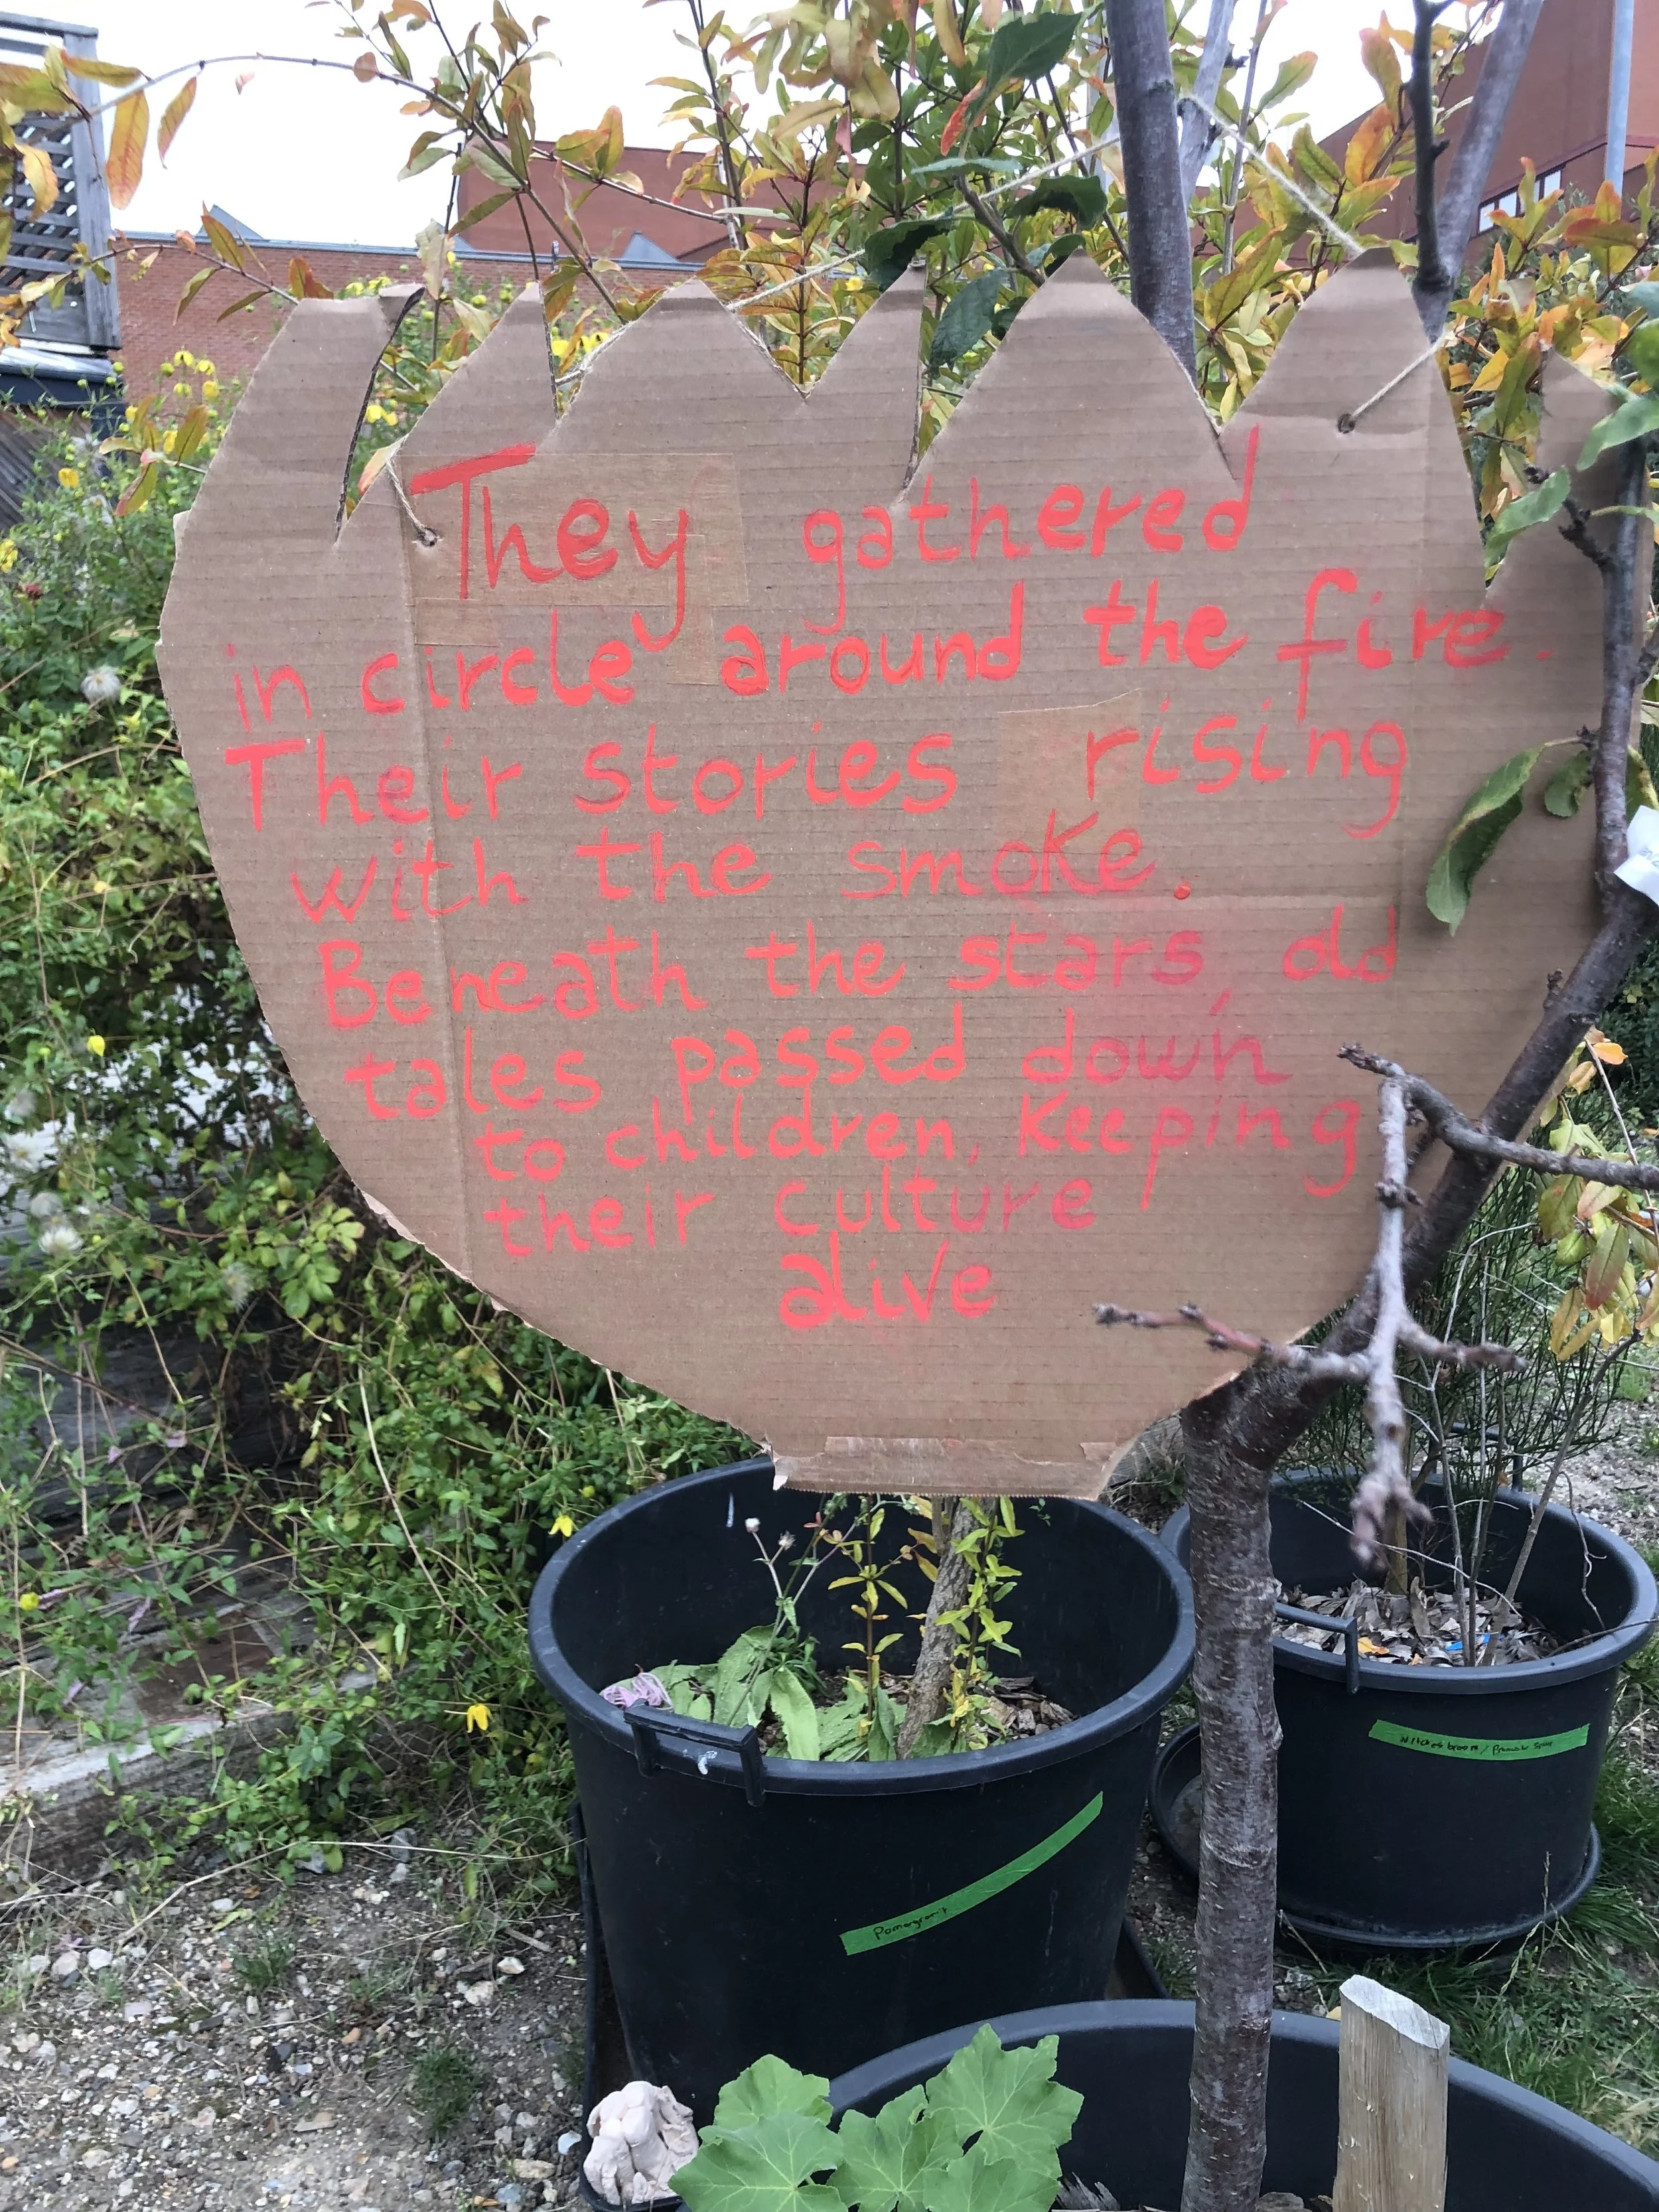 They gathered
in circle around the fire.
Their stories rising
with the smoke.
Beneath the stars, old
tales passed down
to children, Keeping
their culture
alive